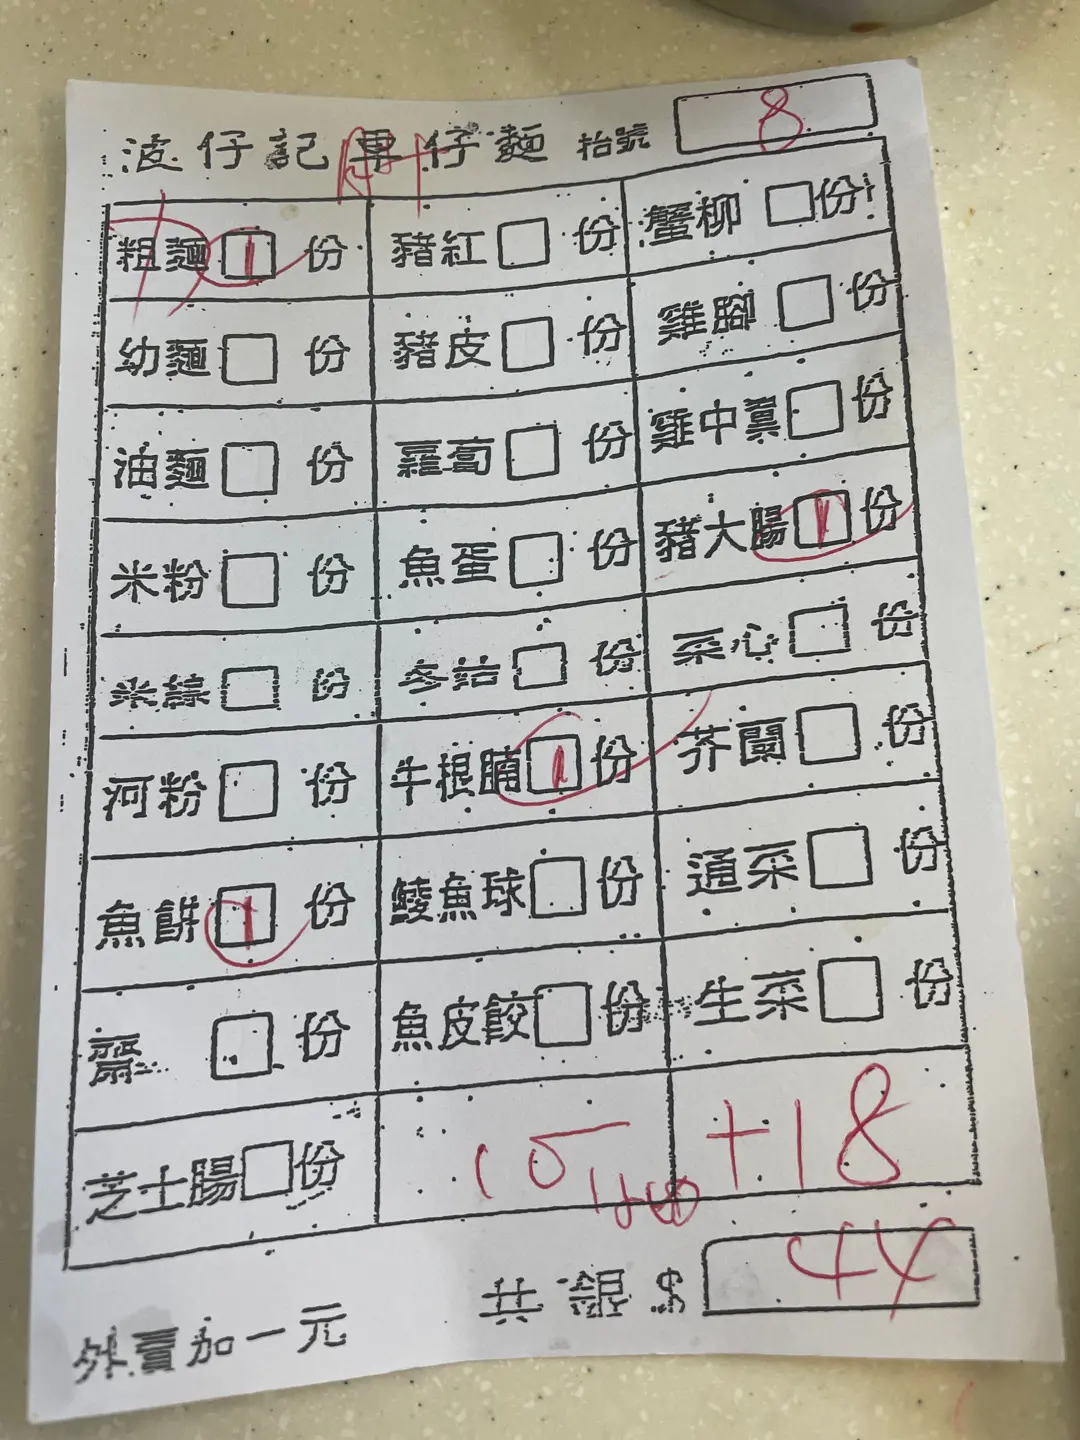 波仔記車仔麵 枱號 8
粗麵 1 份 豬紅 份 蟹柳 份
幼麵 份 豬皮 份 雞腳 份
油麵 份 蘿蔔 份 雞中翼 份
米粉 份 魚蛋 份 豬大腸 1 份
米線 份 冬菇 份 菜心 份
河粉 份 牛根腩 1 份 芥蘭 份
魚餅 1 份 鯪魚球 份 通菜 份
齋 份 魚皮餃 份 生菜 份
芝士腸 份 +18
共銀$ 44
外賣加一元